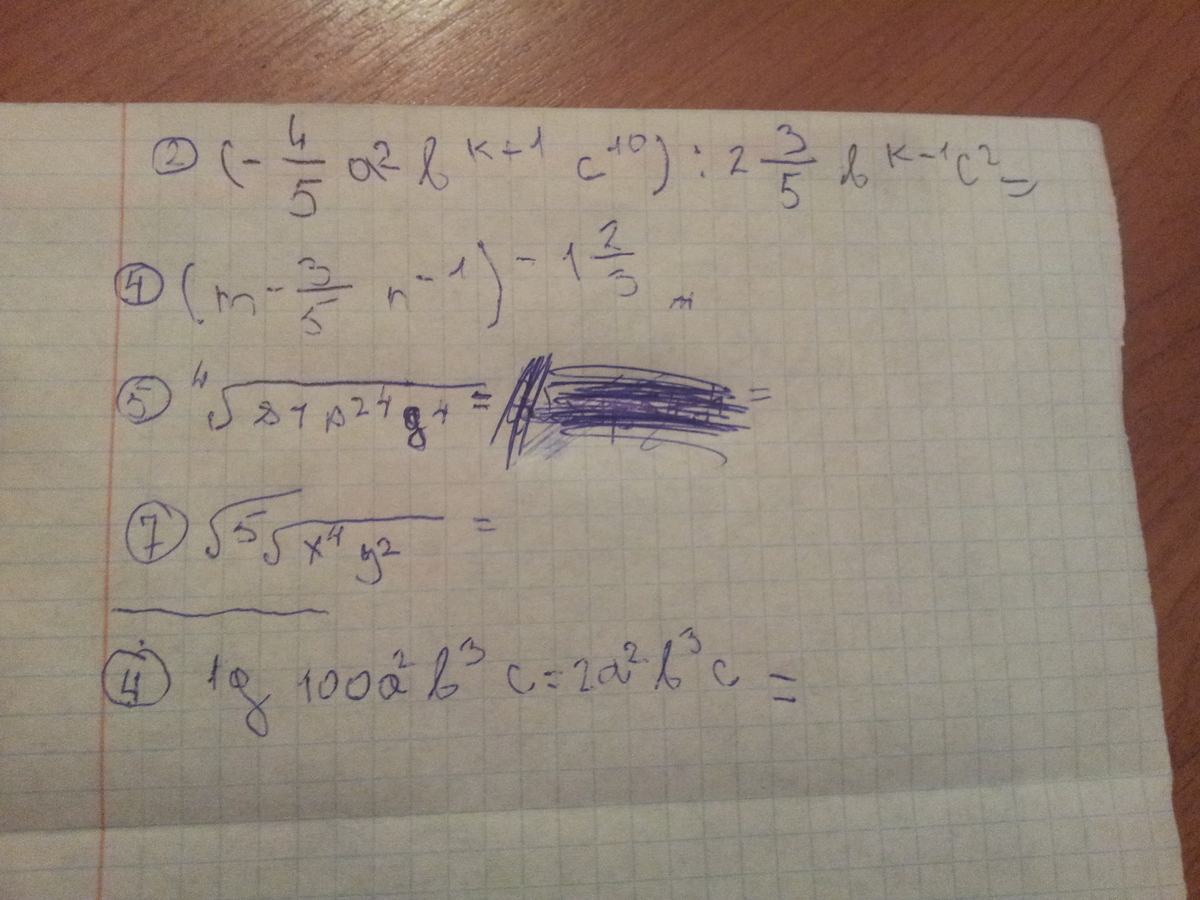 ② (-4/5 a² b^(k+1) c¹⁰) : 2 3/5 b^(k-1) c² =
④ (m^(-3/5) n^(-1))^(-1 2/3)
⑤ ⁴√(81 x²⁴ y⁴) = =
⑦ √(⁵√(x⁴ y²)) =
④ lg 100a² b³ c = 2a² b³ c =